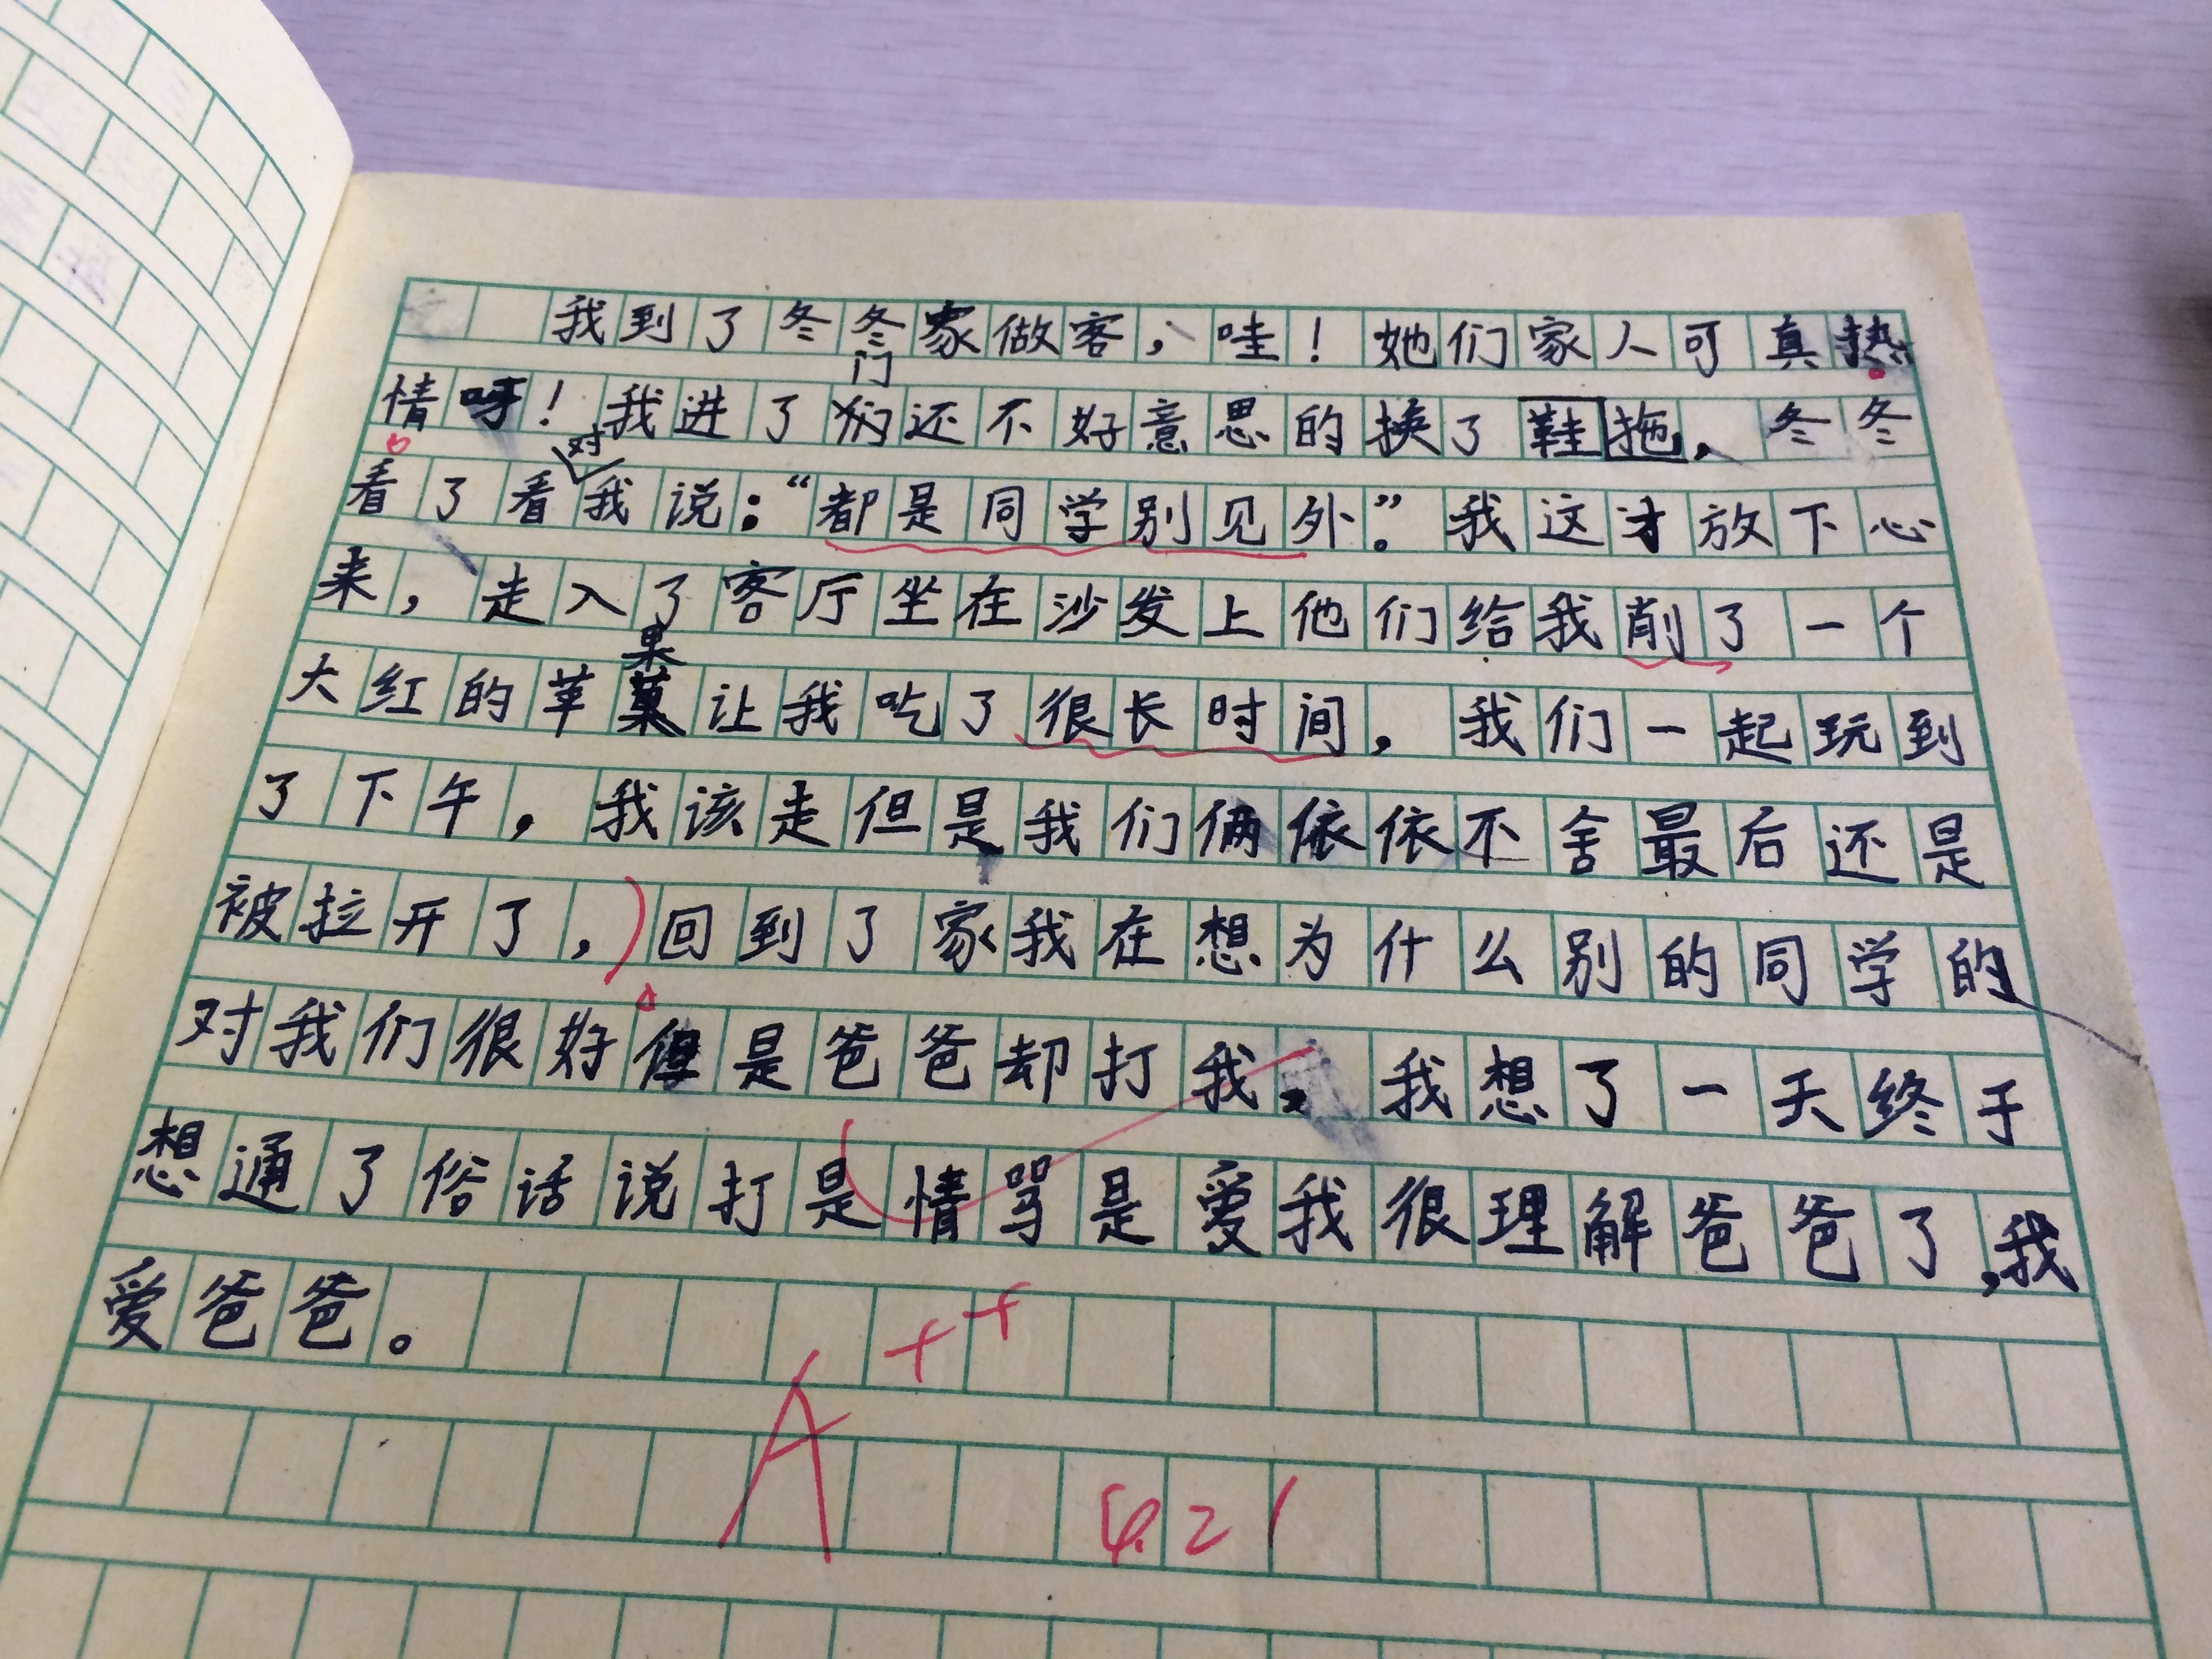 我到了冬冬家做客，哇！她们家人可真热
情呀！我进了门还不好意思的换了鞋拖，冬冬
看了看对我说：“都是同学别见外。”我这才放下心
来，走入了客厅坐在沙发上他们给我削了一个
大红的苹果让我吃了很长时间，我们一起玩到
了下午，我该走但是我们俩依依不舍最后还是
被拉开了，回到了家我在想为什么别的同学的
对我们很好但是爸爸却打我，我想了一天终于
想通了俗话说打是情骂是爱我很理解爸爸了，我
爱爸爸。
A++
4.21